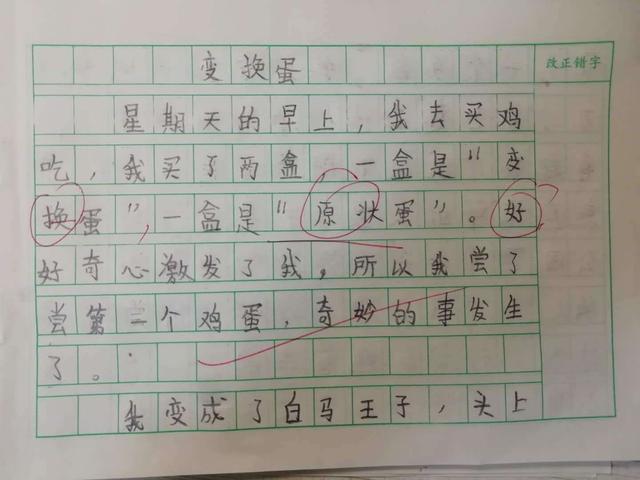 变换蛋
改正错字
星期天的早上，我去买鸡
吃，我买了两盒，一盒是“变
换蛋”，一盒是“原状蛋”。好
好奇心激发了我，所以我尝了
尝第二个鸡蛋，奇妙的事发生
了。
我变成了白马王子，头上